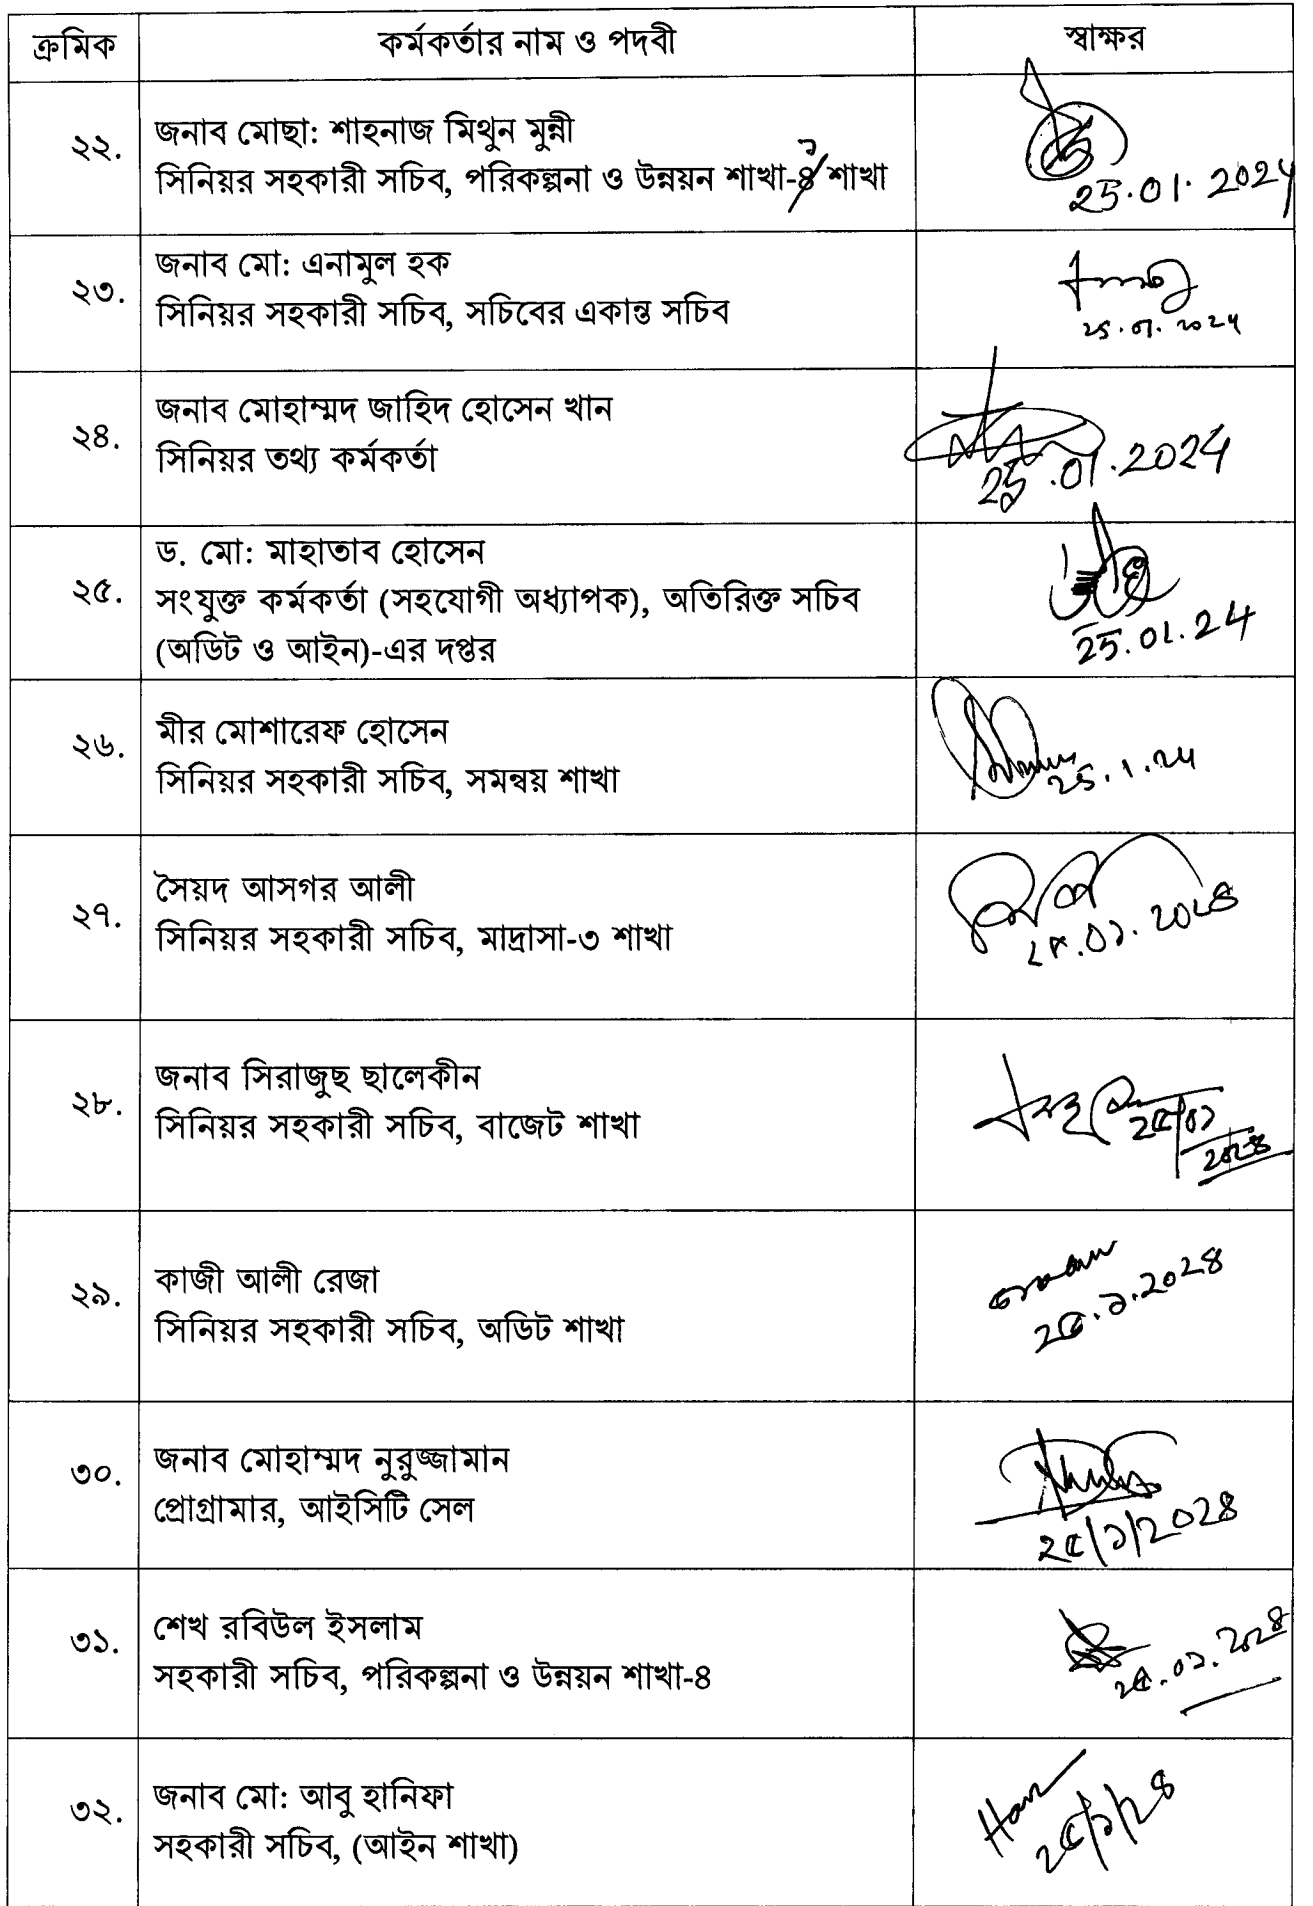 ক্রমিক কর্মকর্তার নাম ও পদবী স্বাক্ষর
২২. জনাব মোছা: শাহনাজ মিথুন মুন্নী
সিনিয়র সহকারী সচিব, পরিকল্পনা ও উন্নয়ন শাখা-৪ শাখা
১
25.01.2024
২৩. জনাব মো: এনামুল হক
সিনিয়র সহকারী সচিব, সচিবের একান্ত সচিব
25.01.2024
২৪. জনাব মোহাম্মদ জাহিদ হোসেন খান
সিনিয়র তথ্য কর্মকর্তা
25.01.2024
২৫. ড. মো: মাহাতাব হোসেন
সংযুক্ত কর্মকর্তা (সহযোগী অধ্যাপক), অতিরিক্ত সচিব
(অডিট ও আইন)-এর দপ্তর
25.01.24
২৬. মীর মোশারেফ হোসেন
সিনিয়র সহকারী সচিব, সমন্বয় শাখা
25.1.24
২৭. সৈয়দ আসগর আলী
সিনিয়র সহকারী সচিব, মাদ্রাসা-৩ শাখা
২৫.০১.২০২৪
২৮. জনাব সিরাজুছ ছালেকীন
সিনিয়র সহকারী সচিব, বাজেট শাখা
২৫/০১
২০২৪
২৯. কাজী আলী রেজা
সিনিয়র সহকারী সচিব, অডিট শাখা
২৫.১.২০২৪
৩০. জনাব মোহাম্মদ নুরুজ্জামান
প্রোগ্রামার, আইসিটি সেল
২৫/১/২০২৪
৩১. শেখ রবিউল ইসলাম
সহকারী সচিব, পরিকল্পনা ও উন্নয়ন শাখা-৪
২৫.০১.২০২৪
৩২. জনাব মো: আবু হানিফা
সহকারী সচিব, (আইন শাখা)
২৫/১/২৪